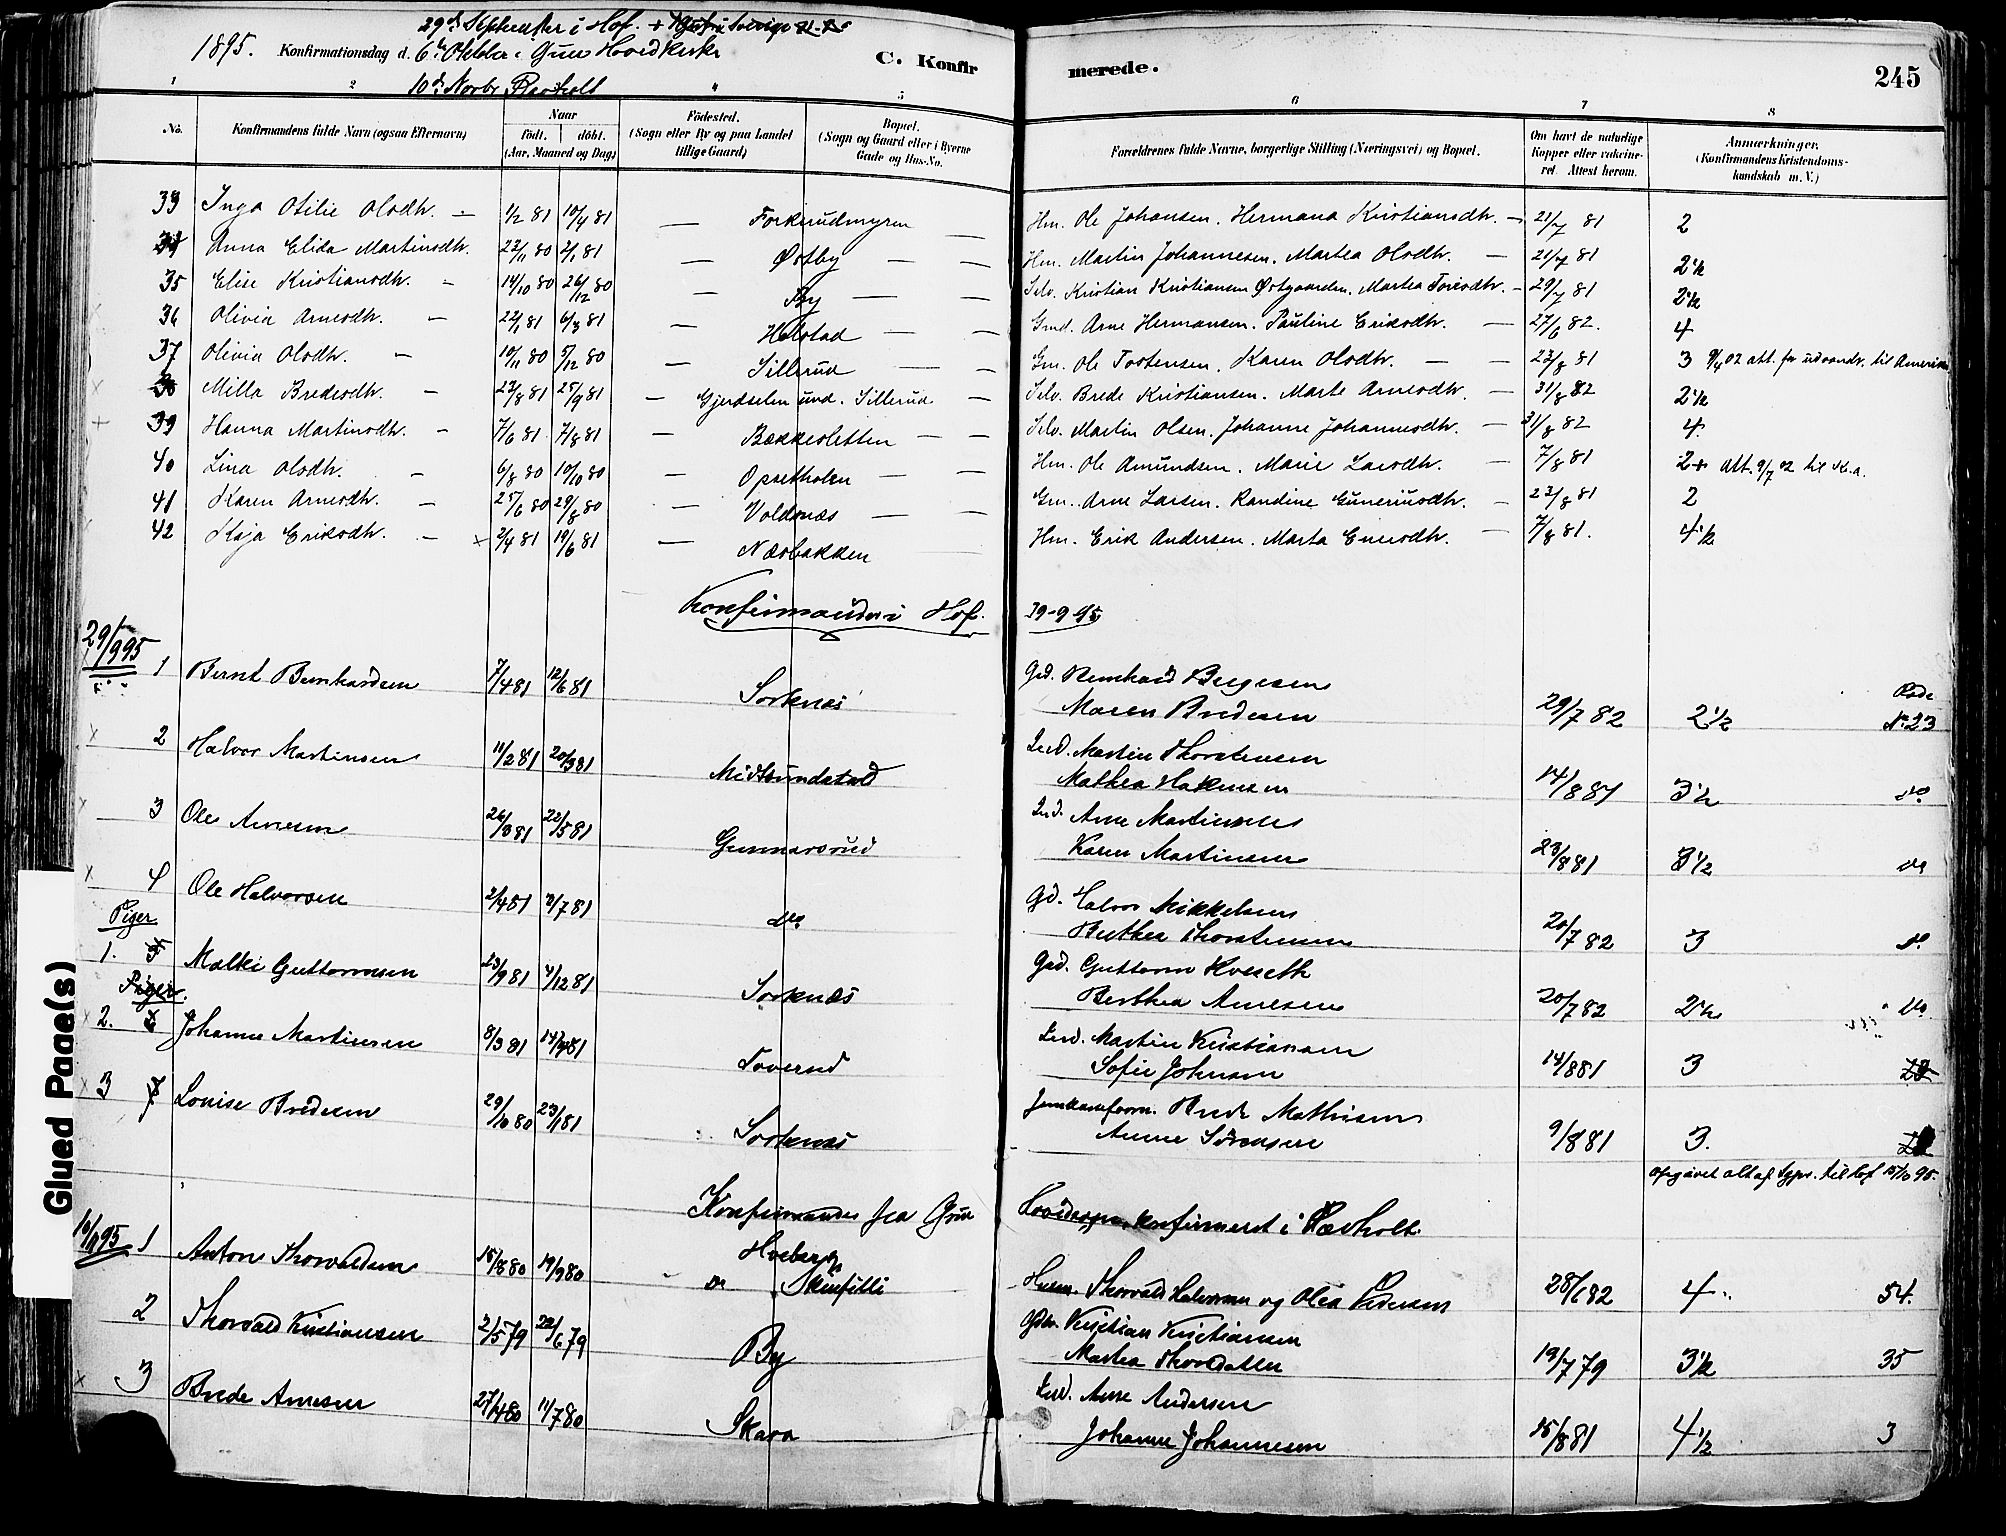 29de September i Hof.
1895. Konfirmationsdag d. 6te Oktober i Grue Hovedkirke C. Konfirmerede. 245
10de Novbr
1 2 4 5 6 7 8
No. Konfirmandens fulde Navn (ogsaa Efternavn) Naar født. døbt. (Aar, Maaned og Dag) Fødested. (Sogn eller By og paa Landet tillige Gaard) Bopæl. (Sogn og Gaard eller i Byerne Gade og Hus-No. Forældrenes fulde Navne, borgerlige Stilling (Næringsvei) og Bopæl. Om havt de naturlige Kopper eller vaccineret. Attest herom. Anmærkninger. (Konfirmandens Kristendomskundskab m. V.)
33 Inga Otilie Olsdtr. — 1/2 81 10/4 81 — Forkerudmyren — Hm. Ole Johansen. Hermana Kristiansdtr. — 21/7 81 2
34 Anna Elida Martinsdtr. 22/11 80 2/1 81 — Østby — — Hm. Martin Johannesen. Martea Olsdtr. — 21/7 81 2 1/2
35 Elise Kristiansdtr. — 14/10 80 26/12 80 — By — — Selv. Kristian Kristiansen Østgaarden. Martea Toresdtr. — 29/7 81 2 1/2
36 Olivia Arnesdtr. — 22/1 81 6/3 81 — Helstad — — Gmd. Arne Hermansen. Pauline Eriksdtr. — 27/6 82. 4
37 Olivia Olsdtr. — 10/11 80 5/12 80 — Sillerud — — Gm. Ole Tostensen. Karen Olsdtr. — — 23/8 81 3 9/4 02 att. for udvandr. til Amerika
38 Milla Bredesdtr. — 23/8 81 25/9 81 — Gjerdselen und. Sillerud — Selv. Brede Kristiansen. Marte Arnesdtr. — 31/8 82 2 1/2
39 Hanna Martinsdtr. — 7/6 81 7/8 81 — Bækkesletten — — Selv. Martin Olsen. Johanne Johannesdtr. — 31/8 82 4.
40 Lina Olsdtr. — 6/8 80 10/10 80 — Opsetholen — — Hm. Ole Amundsen. Marie Larsdtr. — 7/8 81 2+ Att. 9/7 02 til K.a.
41 Karen Arnesdtr. — 25/6 80 29/8 80 — Voldsnæs — — Gm. Arne Larsen. Randine Guneriusdtr. — 23/8 81 2
42 Kaja Eriksdtr. — 2/4 81 19/6 81 — Næsbakken Hm. Erik Andersen. Marta Enersdtr. — 7/8 81. 4 1/2
Konfirmander i Hof. 29-9-95
29/9 95
1 Bernt Bernhardsen 7/4 81 12/6 81 Sorknæs Gd. Bernhard Bergesen
Maren Bredesen 29/7 82 2 1/2 Rode No 23
2 Halvor Martinsen 11/2 81 20/3 81 Midtsundstad Ind. Martin Thorstensen
Mathea Hakensen 14/8 81 3 1/2 do
3 Ole Arnesen 26/3 81 22/5 81 Gunnarsrud Ind. Arne Martinsen
Karen Martinsen 23/8 81 3 1/2 do
4 Ole Halvorsen 2/4 81 3/7 81 do Gd. Halvor Mikkelsen
Berthea Thorstensen 20/7 82 3 do
Piger
1. 5 Malki Guttormsen 23/9 81 4/12 81 Sorknæs Gd. Guttorm Kveseth
Berthea Arnesen 20/7 82 2 1/2 do
Piger.
2. 6 Johanne Martinsen 8/3 81 Toverud Ind. Martin Kristiansen
Sofie Johnsen 14/8 81 3 23
3 7 Louise Bredesen 29/10 80 23/1 81 Sorknæs Brede Mathisen
Anne Sørensen 9/8 81 3.
Konfirmander fra Grue Hovedsogn konfirmeret i
10/11 95
1 Anton Thorvaldsen 15/8 80 19/9 80 Hveberg
do Skinfilli Husm. Thorvald Halvorsen og Olea Pedersen 28/6 82 4 54.
2 Thorvald Kristiansen 2/5 79 22/6 79 By Gdbr. Kristian Kristiansen
Martea Thorsdatter 19/7 79 3 1/2 35
3 Brede Arnesen 27/4 80 11/7 80 Skara Ind. Arne Andersen
Johanne Johannesen 15/8 81 4 1/2 3
Glued Page(s)